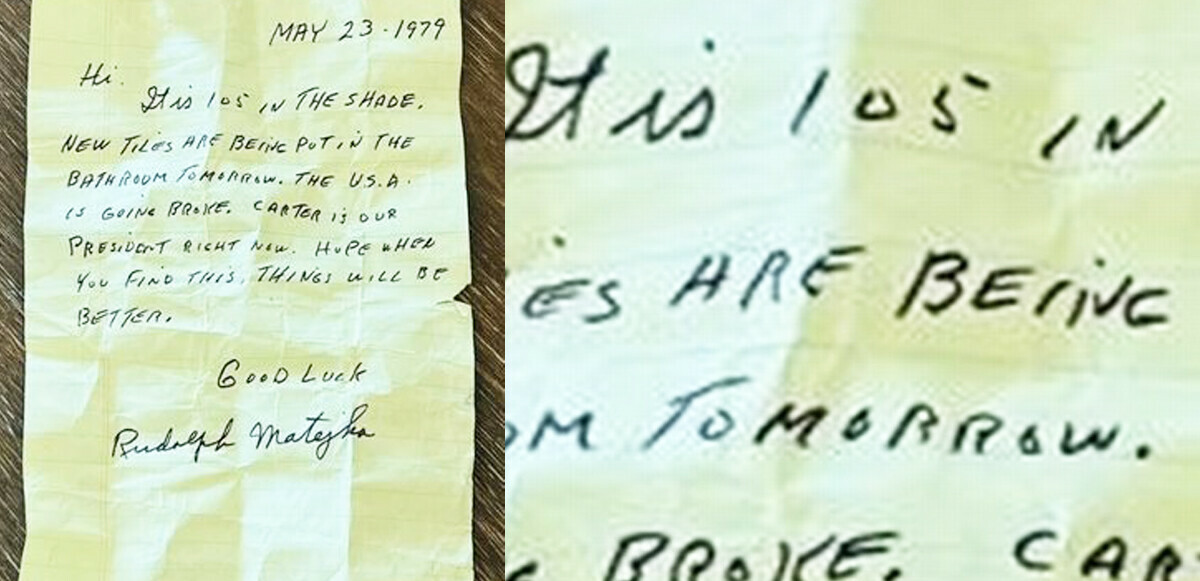 MAY 23 - 1979
Hi.
It is 105 IN THE SHADE.
NEW TiLES ARE BEiNG PUT iN THE
BATHROOM TOMORROW. THE U.S.A.
IS GOING BROKE. CARTER iS OUR
PRESIDENT RIGHT NOW. HOPE WHEN
YOU FIND THIS, THINGS WILL BE
BETTER.
GOOD LUCK
Rudolph Matejka
It is 105 IN
ES ARE BEiNG
OM TOMORROW.
BROKE. CAR